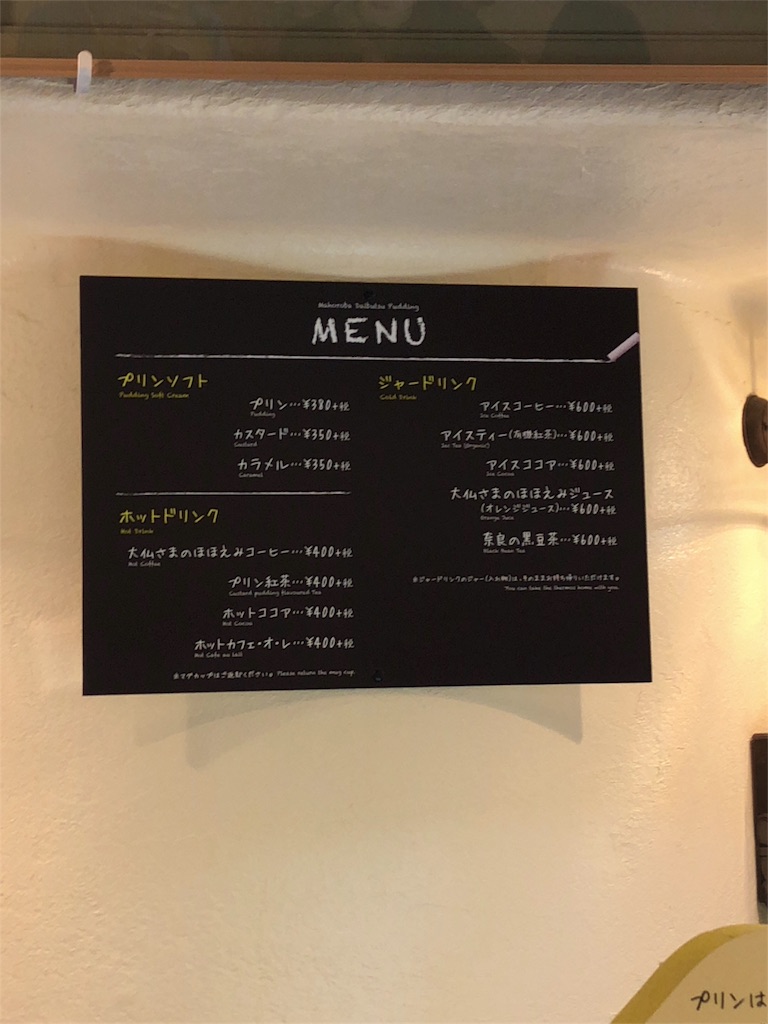 Mahoroba Daibutsu Pudding
MENU
プリンソフト
Pudding Soft Cream
プリン…¥380+税
Pudding
カスタード…¥350+税
Custard
カラメル…¥350+税
Caramel
ホットドリンク
Hot Drink
大仏さまのほほえみコーヒー…¥400+税
Hot Coffee
プリン紅茶…¥400+税
Custard pudding flavoured Tea
ホットココア…¥400+税
Hot Cocoa
ホットカフェ・オ・レ…¥400+税
Hot Cafe au lait
※マグカップはご返却ください。Please return the mug cup.
ジャードリンク
Cold Drink
アイスコーヒー…¥600+税
Ice Coffee
アイスティー(有機紅茶)…¥600+税
Ice Tea (Organic)
アイスココア…¥600+税
Ice Cocoa
大仏さまのほほえみジュース
(オレンジジュース)…¥600+税
Orange Juce
奈良の黒豆茶…¥600+税
Black Bean Tea
※ジャードリンクのジャー(入れ物)は、そのままお持ち帰りいただけます。
You can take the thermos home with you.
プリンは